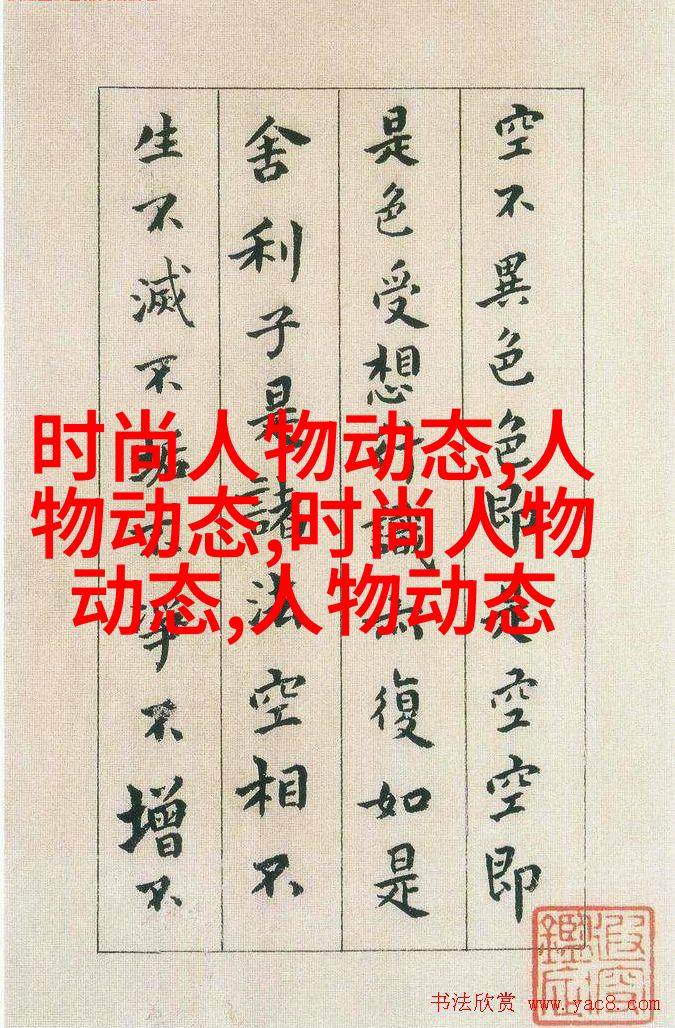 空不異色色即是空空即
是色受想行識亦復如是
舍利子是諸法空相不
生不滅不垢不淨不增不
时尚人物动态,人
物动态,时尚人物
动态,人物动态
书法欣赏 www.yac8.com